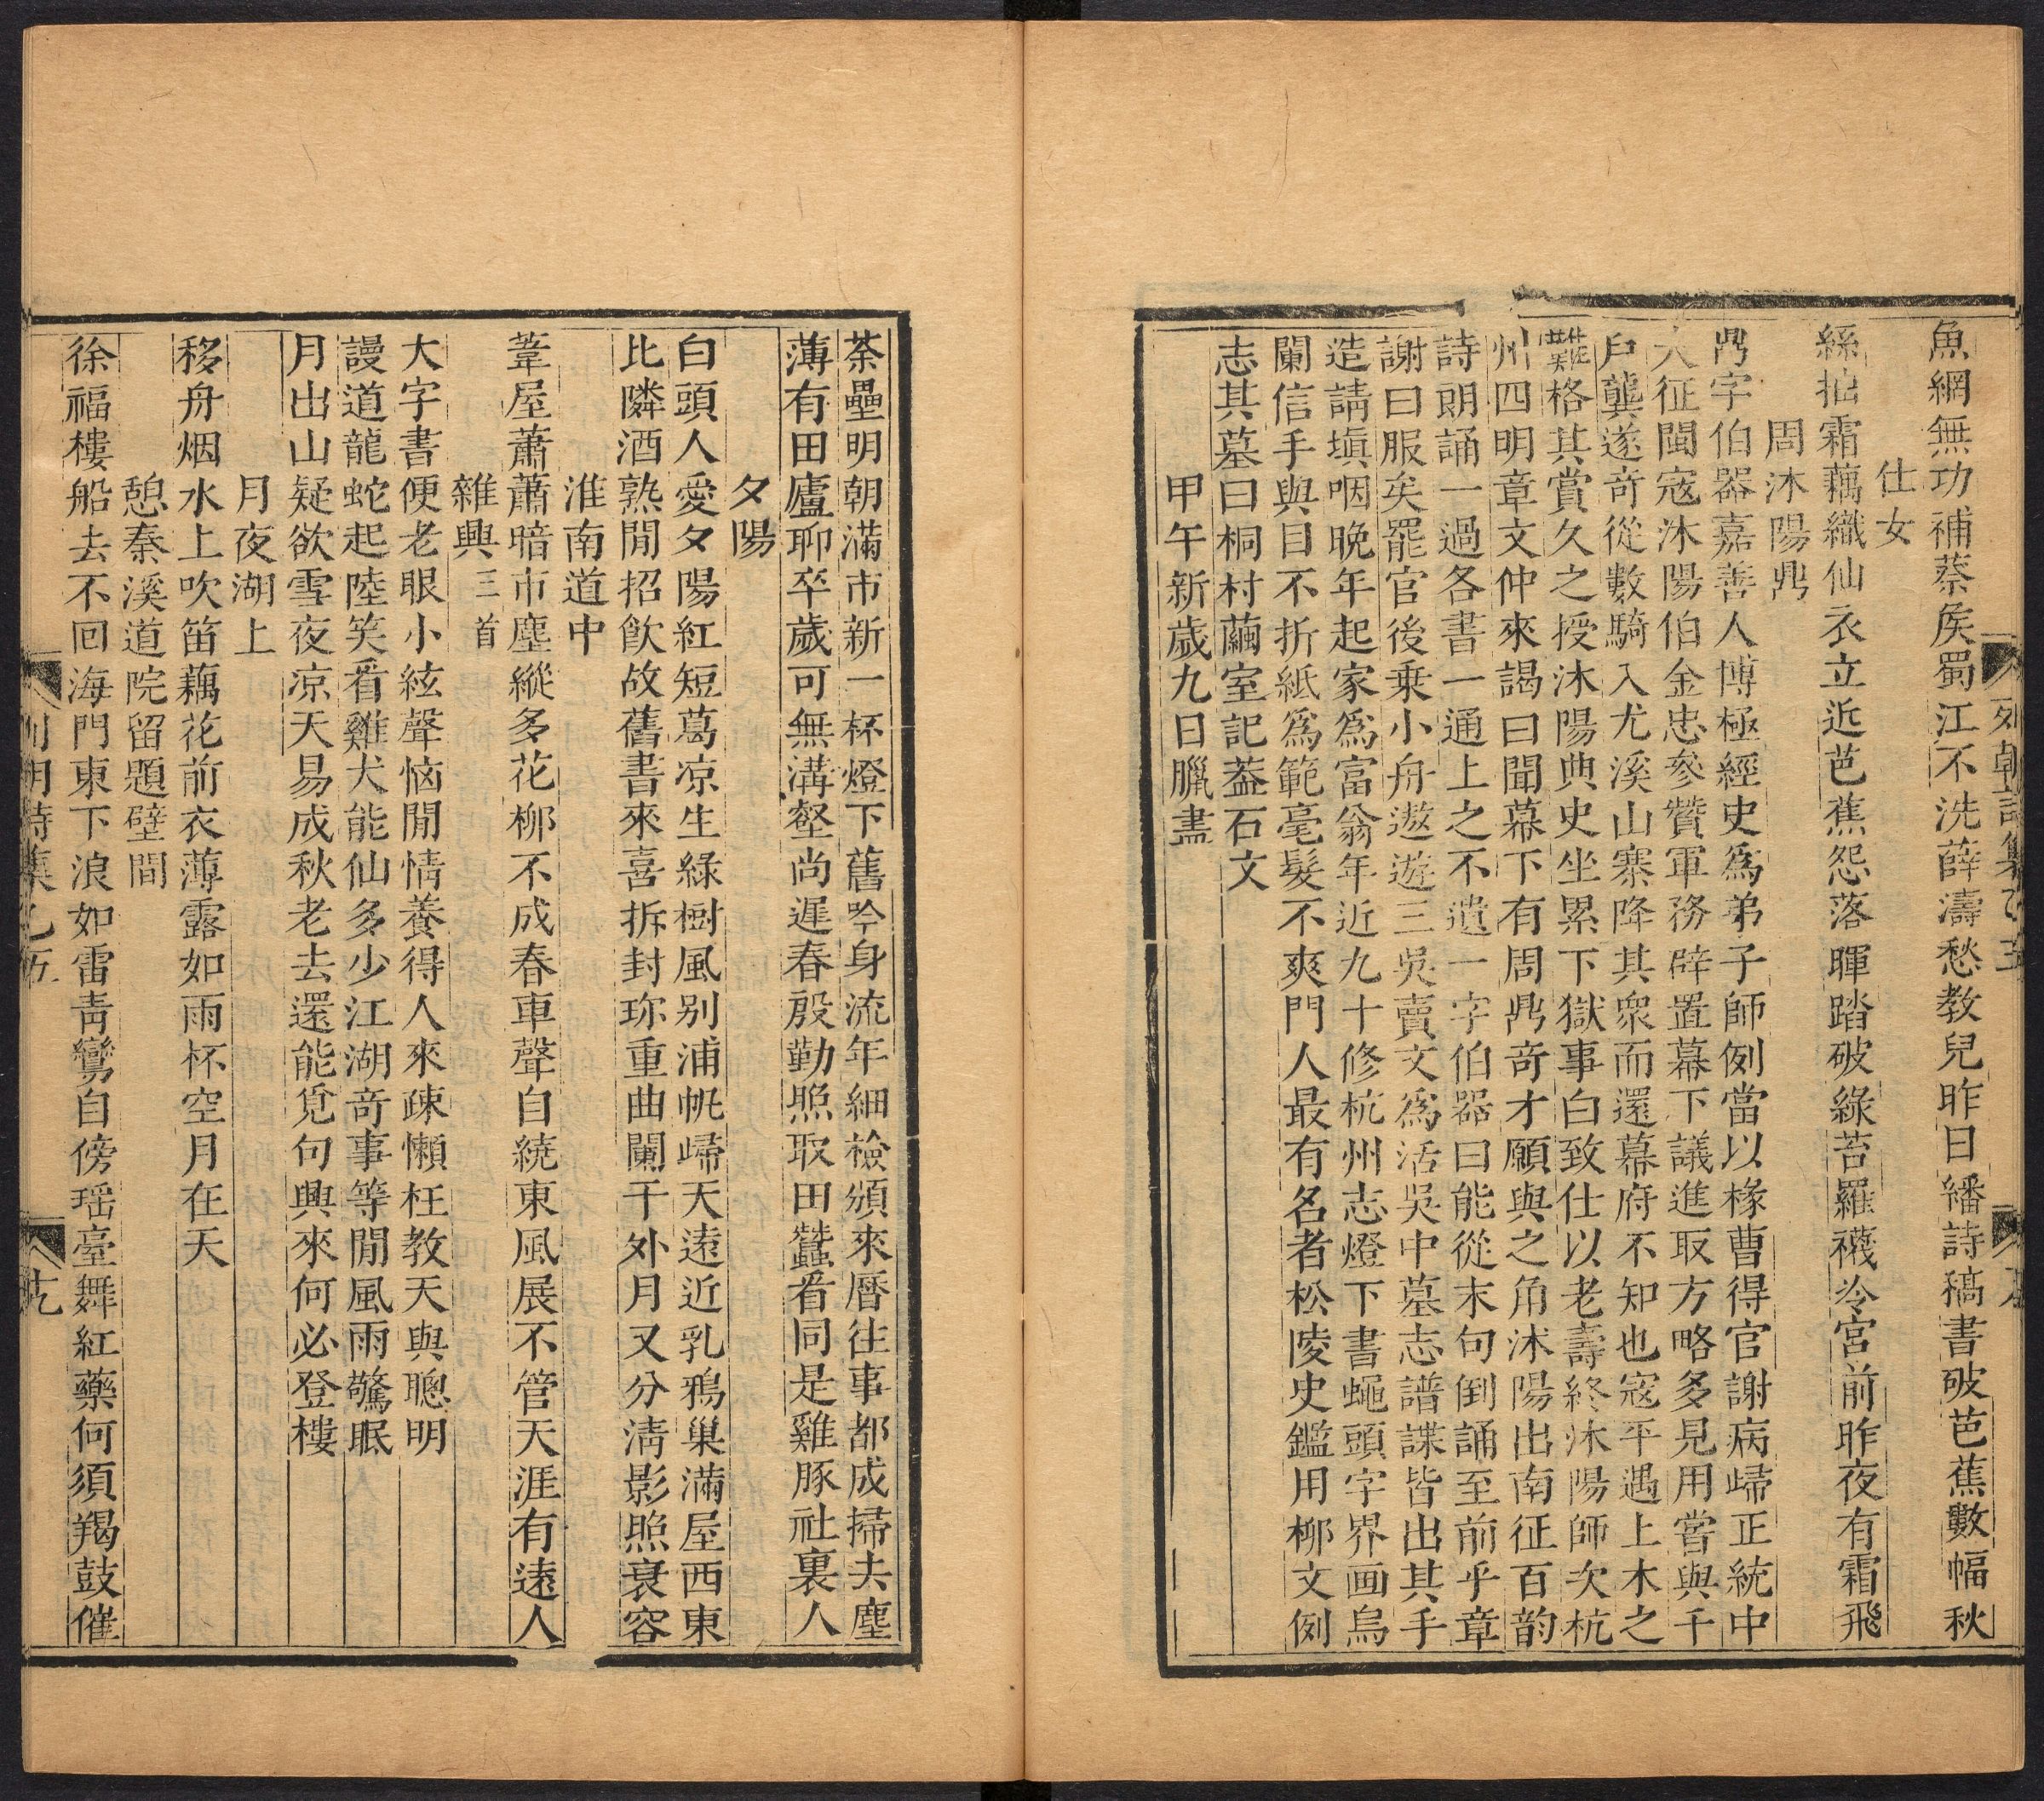 魚網無功補蔡侯蜀江不洗薛濤愁教兒昨日繙詩稿書破芭蕉數幅秋
仕女
絲抽霜藕織仙衣立近芭蕉怨落暉踏破綠苔羅襪冷宮前昨夜有霜飛
周沐陽鼎
鼎字伯器嘉善人博極經史爲弟子師例當以椽曹得官謝病歸正統中
大征閩寇沐陽伯金忠參贊軍務辟置幕下議進取方略多見用嘗與千
戶龔遂奇從數騎入尤溪山寨降其衆而還幕府不知也寇平遇上木之
難格其賞久之授沐陽典史坐累下獄事白致仕以老壽終沐陽師次杭
州四明章文仲來謁曰聞幕下有周鼎奇才願與之角沐陽出南征百韵
詩朗誦一過各書一通上之不遺一字伯器曰能從末句倒誦至前乎章
謝曰服矣罷官後乗小舟遨遊三吳賣文爲活吳中墓志譜諜皆出其手
造請塡咽晚年起家爲富翁年近九十修杭州志燈下書蠅頭字界画烏
闌信手與目不折紙爲範毫髮不爽門人最有名者松陵史鑑用柳文例
志其墓曰桐村繭室記葢石文
甲午新歲九日臘盡
荼壘明朝滿市新一杯燈下舊吟身流年細檢頒來曆往事都成掃去塵
薄有田廬聊卒歲可無溝壑尚遲春殷勤照取田蠶看同是雞豚社裏人
夕陽
白頭人愛夕陽紅短葛凉生綠樹風別浦帆歸天遠近乳鴉巢滿屋西東
比隣酒熟閒招飲故舊書來喜拆封珎重曲闌干外月又分淸影照衰容
淮南道中
葦屋蕭蕭暗市塵縱多花柳不成春車聲自繞東風展不管天涯有遠人
雜興三首
大字書便老眼小絃聲惱閒情養得人來疎懶枉教天與聰明
謾道龍蛇起陸笑看雞犬能仙多少江湖奇事等閒風雨驚眠
月出山疑欲雪夜凉天易成秋老去還能覓句興來何必登樓
月夜湖上
移舟烟水上吹笛藕花前衣薄露如雨杯空月在天
憩秦溪道院留題壁間
徐福樓船去不回海門東下浪如雷靑鸞自傍瑶臺舞紅藥何須羯鼓催